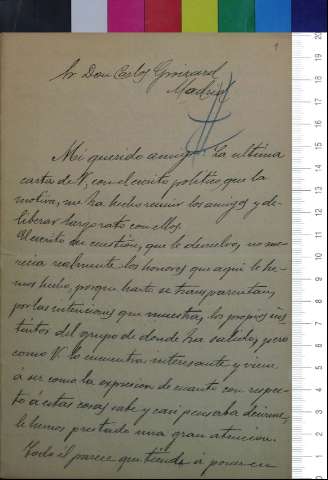 1
Sr Don Carlos Groizard
Madrid
Mi querido amigo: La ultima
carta de V, con el escrito politico que la
motiva, me ha hecho reunir los amigos y de-
liberar largo rato con ellos.
El escrito en cuestion, que le devuelvo, no me-
recia realmente los honores que aqui le he-
mos hecho, porque harto se transparentan,
por las intenciones que muestra, los propios ins-
tintos del grupo de donde ha salido; pero
como V. lo encuentra interesante y viene
á ser como la expresion de cuanto con respec-
to á estas cosas sabe y casi pensaba decirme,
le hemos prestado una gran atencion.
Todo él parece que tiende á poner en